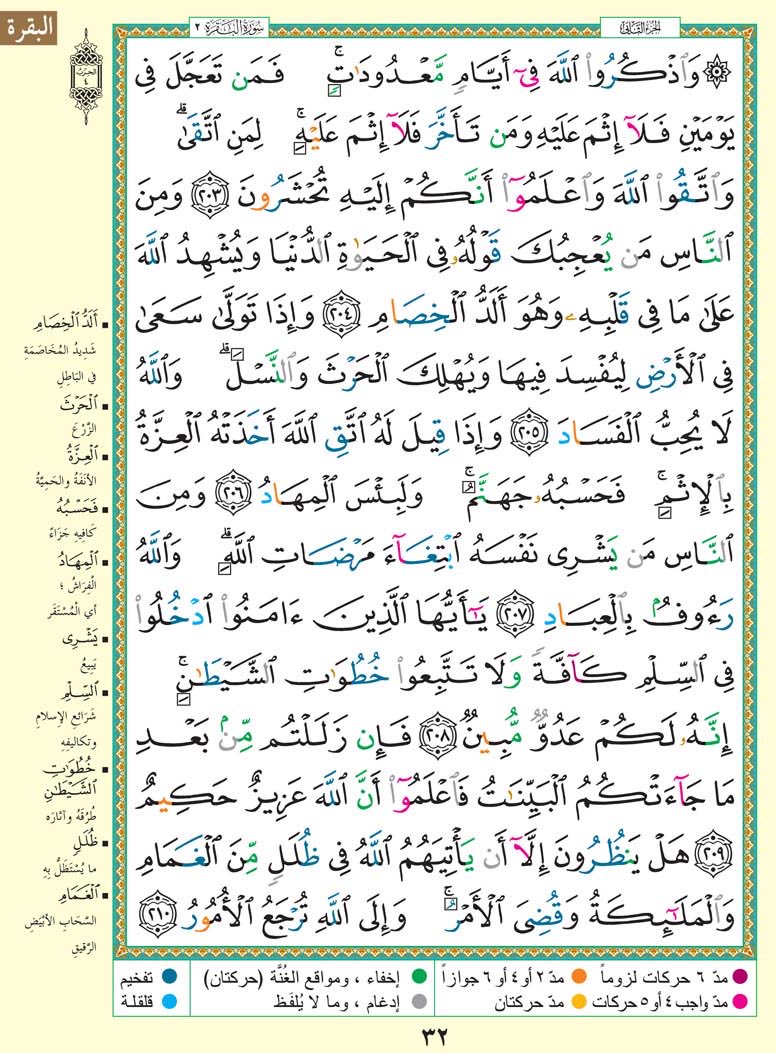 البقرة
الجزء الثاني
سورة البقرة ٢
الحزب ٤
۞ وَٱذْكُرُوا۟ ٱللَّهَ فِىٓ أَيَّامٍ مَّعْدُودَٰتٍ ۚ فَمَن تَعَجَّلَ فِى
يَوْمَيْنِ فَلَآ إِثْمَ عَلَيْهِ وَمَن تَأَخَّرَ فَلَآ إِثْمَ عَلَيْهِ ۚ لِمَنِ ٱتَّقَىٰ ۗ
وَٱتَّقُوا۟ ٱللَّهَ وَٱعْلَمُوٓا۟ أَنَّكُمْ إِلَيْهِ تُحْشَرُونَ ٢٠٣ وَمِنَ
ٱلنَّاسِ مَن يُعْجِبُكَ قَوْلُهُۥ فِى ٱلْحَيَوٰةِ ٱلدُّنْيَا وَيُشْهِدُ ٱللَّهَ
عَلَىٰ مَا فِى قَلْبِهِۦ وَهُوَ أَلَدُّ ٱلْخِصَامِ ٢٠٤ وَإِذَا تَوَلَّىٰ سَعَىٰ
فِى ٱلْأَرْضِ لِيُفْسِدَ فِيهَا وَيُهْلِكَ ٱلْحَرْثَ وَٱلنَّسْلَ ۗ وَٱللَّهُ
لَا يُحِبُّ ٱلْفَسَادَ ٢٠٥ وَإِذَا قِيلَ لَهُ ٱتَّقِ ٱللَّهَ أَخَذَتْهُ ٱلْعِزَّةُ
بِٱلْإِثْمِ ۚ فَحَسْبُهُۥ جَهَنَّمُ ۚ وَلَبِئْسَ ٱلْمِهَادُ ٢٠٦ وَمِنَ
ٱلنَّاسِ مَن يَشْرِى نَفْسَهُ ٱبْتِغَآءَ مَرْضَاتِ ٱللَّهِ ۗ وَٱللَّهُ
رَءُوفٌۢ بِٱلْعِبَادِ ٢٠٧ يَٰٓأَيُّهَا ٱلَّذِينَ ءَامَنُوا۟ ٱدْخُلُوا۟
فِى ٱلسِّلْمِ كَآفَّةً وَلَا تَتَّبِعُوا۟ خُطُوَٰتِ ٱلشَّيْطَٰنِ ۚ
إِنَّهُۥ لَكُمْ عَدُوٌّ مُّبِينٌ ٢٠٨ فَإِن زَلَلْتُم مِّنۢ بَعْدِ
مَا جَآءَتْكُمُ ٱلْبَيِّنَٰتُ فَٱعْلَمُوٓا۟ أَنَّ ٱللَّهَ عَزِيزٌ حَكِيمٌ
٢٠٩ هَلْ يَنظُرُونَ إِلَّآ أَن يَأْتِيَهُمُ ٱللَّهُ فِى ظُلَلٍ مِّنَ ٱلْغَمَامِ
وَٱلْمَلَٰٓئِكَةُ وَقُضِىَ ٱلْأَمْرُ ۚ وَإِلَى ٱللَّهِ تُرْجَعُ ٱلْأُمُورُ ٢١٠
▪ أَلَدُّ ٱلْخِصَامِ
شَدِيدُ المُخَاصَمَةِ
فِي البَاطِلِ
▪ ٱلْحَرْثَ
الزَّرْعَ
▪ ٱلْعِزَّةُ
الأَنَفَةُ والحَمِيَّةُ
▪ فَحَسْبُهُ
كَافِيهِ جَزَاءً
▪ ٱلْمِهَادُ
الْفِرَاشُ ؛
أي الْمُسْتَقَر
▪ يَشْرِى
يَبِيعُ
▪ ٱلسِّلْمِ
شَرَائِعِ الإسلامِ
وتكاليفِهِ
▪ خُطُوَٰتِ
ٱلشَّيْطَٰنِ
طُرُقَهُ وآثارَه
▪ ظُلَلٍ
ما يُسْتَظَلُّ بِهِ
▪ ٱلْغَمَامِ
السَّحَابِ الأَبْيَضِ
الرَّقيقِ
مدّ ٦ حركات لزوماً
مدّ ٢ أو ٤ أو ٦ جوازاً
إخفاء ، ومواقع الغُنَّة (حركتان)
تفخيم
مدّ واجب ٤ أو ٥ حركات
مدّ حركتان
إدغام ، وما لا يُلفَظ
قلقلة
٣٢